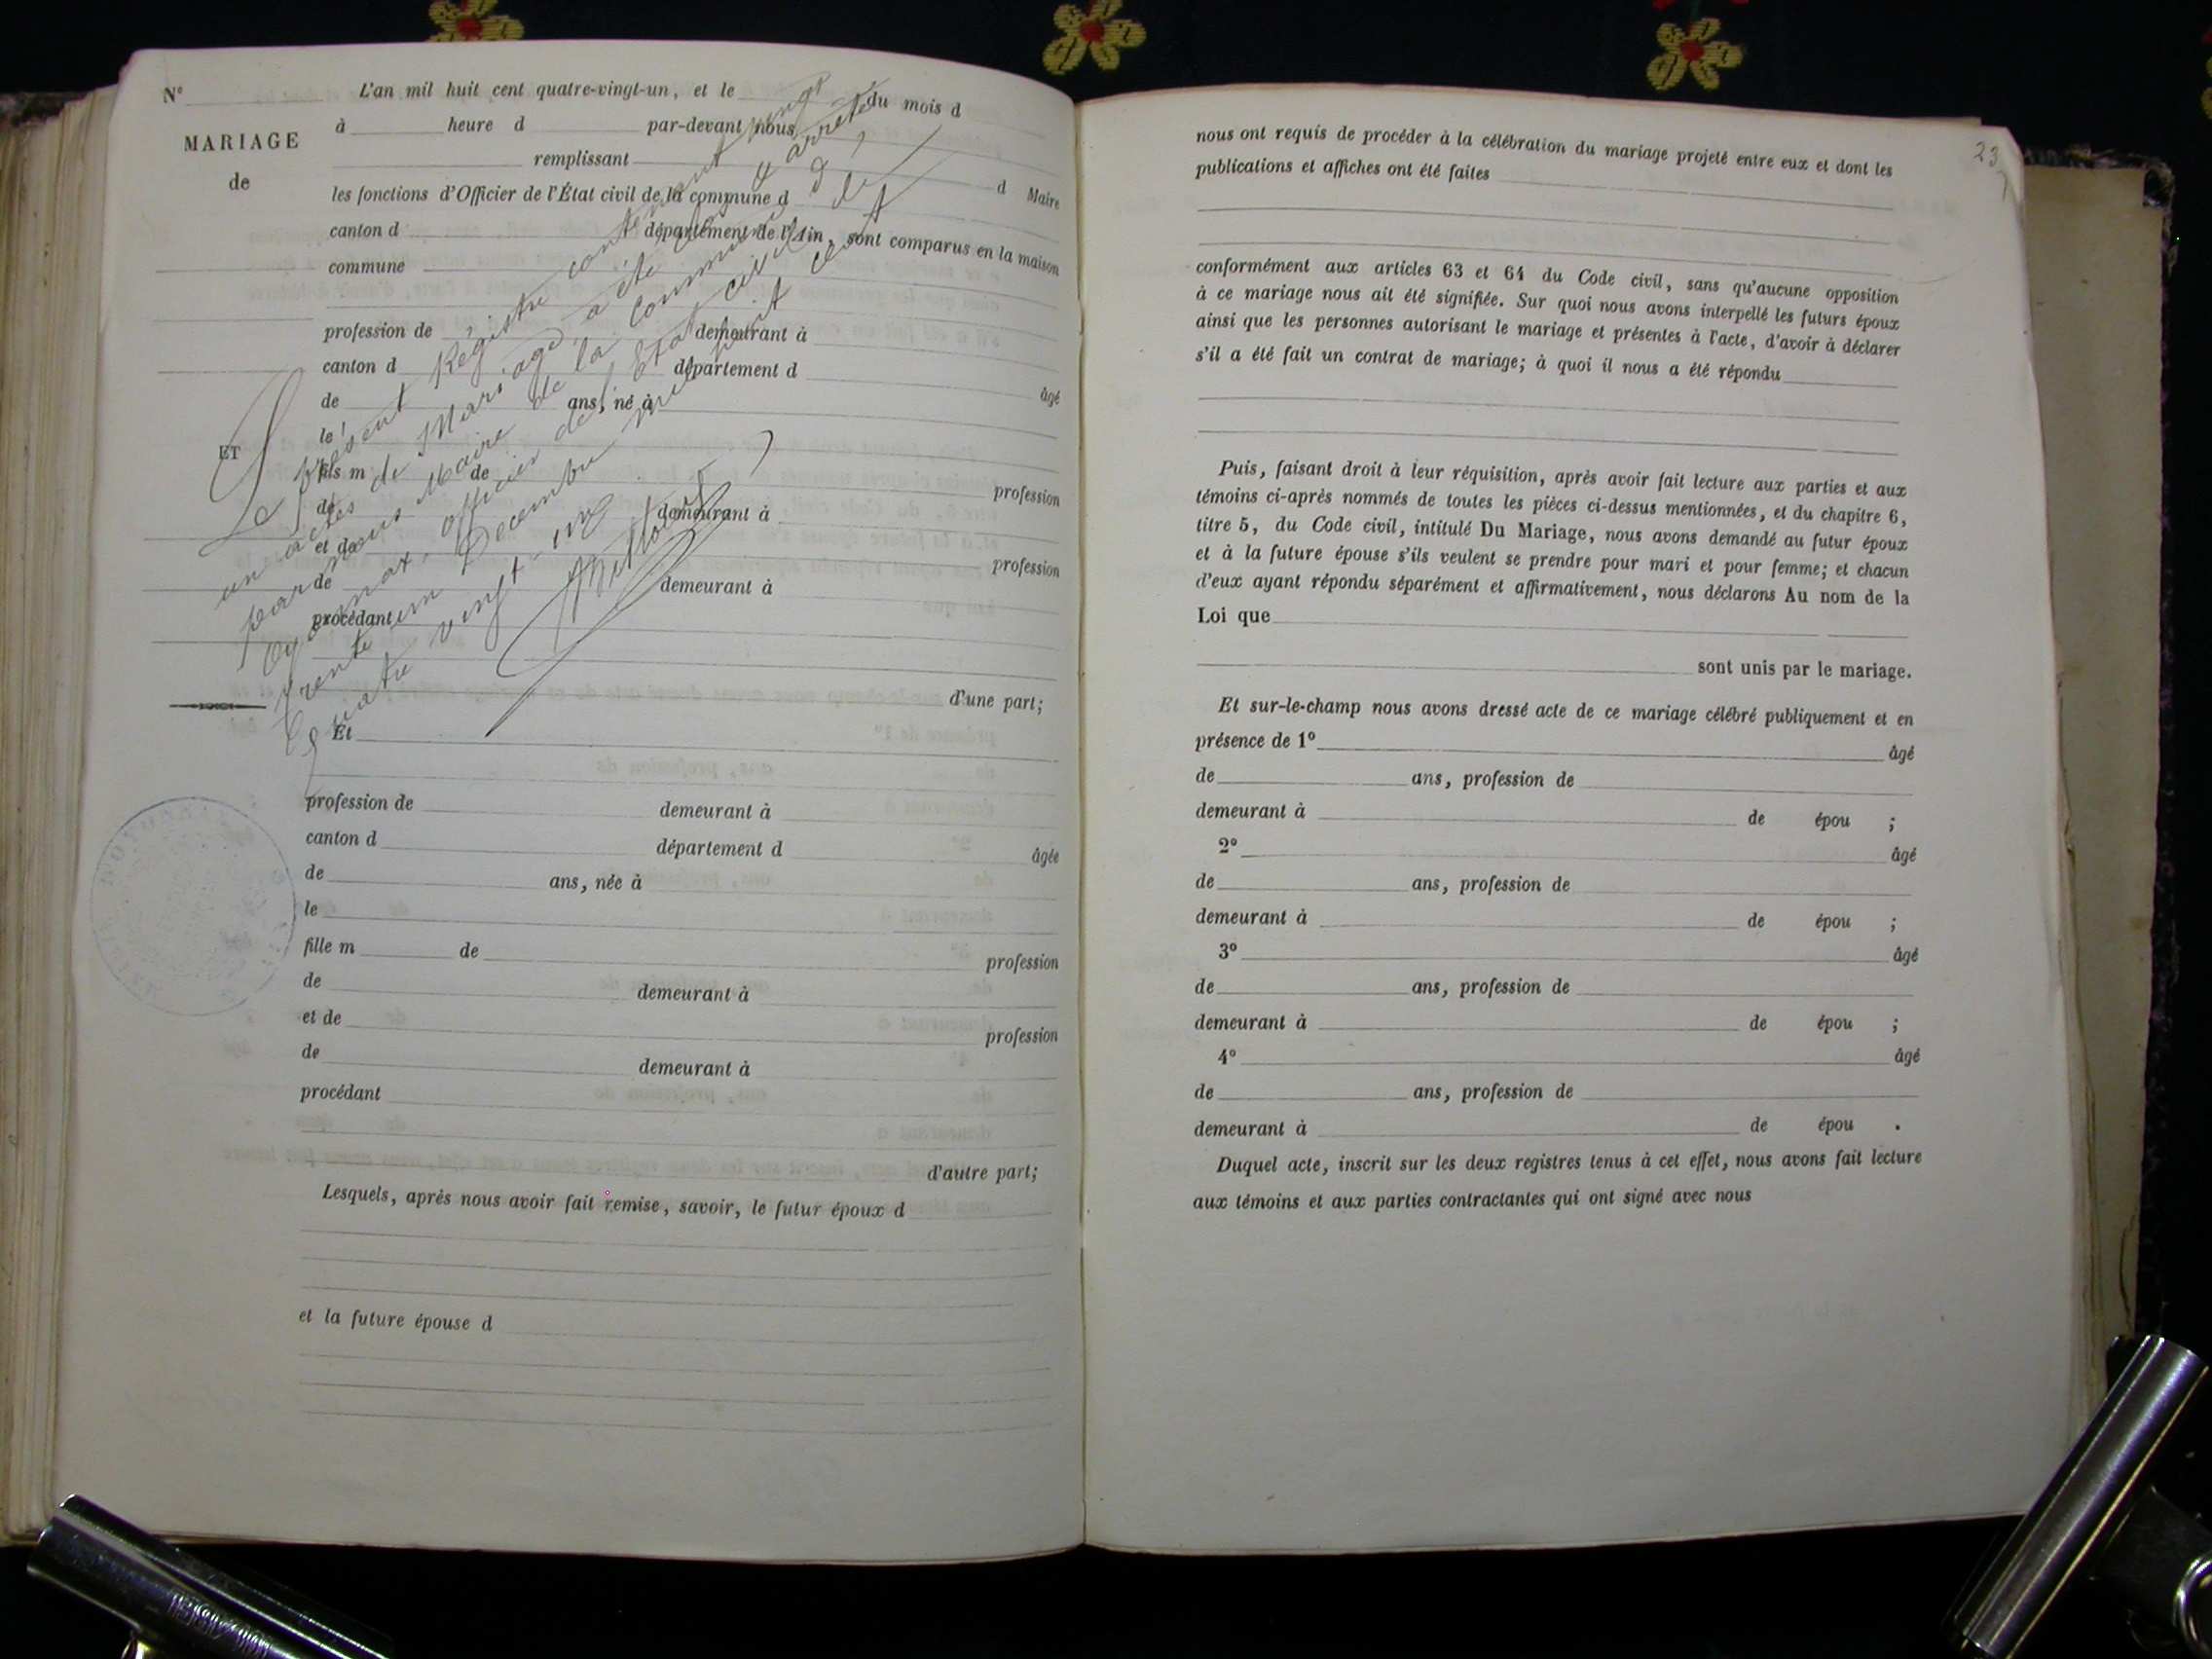 N° L'an mil huit cent quatre-vingt-un, et le du mois d
MARIAGE
à heure d par-devant nous
remplissant
de
d Maire
les fonctions d'Officier de l'État civil de la commune d
canton d département de l'Ain, sont comparus en la maison
commune
profession de demeurant à
canton d département d
âgé
de ans, né à
le
ET
fils m de
profession
de demeurant à
et de
profession
de demeurant à
procédant
d'une part;
Et
profession de demeurant à
canton d département d âgée
de ans, née à
le
fille m de profession
de demeurant à
et de profession
de demeurant à
procédant
d'autre part;
Lesquels, après nous avoir fait remise, savoir, le futur époux d
et la future épouse d
Le présent Régistre contenant vingt
un actes de Mariage, a été clos & arrêté
par nous Maire de la commune d'
Oyonnax, officier de l'Etat civil le
trente un Décembre mil huit cent
quatre vingt-un
23
nous ont requis de procéder à la célébration du mariage projeté entre eux et dont les
publications et affiches ont été faites
conformément aux articles 63 et 64 du Code civil, sans qu'aucune opposition
à ce mariage nous ait été signifiée. Sur quoi nous avons interpellé les futurs époux
ainsi que les personnes autorisant le mariage et présentes à l'acte, d'avoir à déclarer
s'il a été fait un contrat de mariage; à quoi il nous a été répondu
Puis, faisant droit à leur réquisition, après avoir fait lecture aux parties et aux
témoins ci-après nommés de toutes les pièces ci-dessus mentionnées, et du chapitre 6,
titre 5, du Code civil, intitulé Du Mariage, nous avons demandé au futur époux
et à la future épouse s'ils veulent se prendre pour mari et pour femme; et chacun
d'eux ayant répondu séparément et affirmativement, nous déclarons Au nom de la
Loi que
sont unis par le mariage.
Et sur-le-champ nous avons dressé acte de ce mariage célébré publiquement et en
présence de 1° âgé
de ans, profession de
demeurant à de épou ;
2° âgé
de ans, profession de
demeurant à de épou ;
3° âgé
de ans, profession de
demeurant à de épou ;
4° âgé
de ans, profession de
demeurant à de épou .
Duquel acte, inscrit sur les deux registres tenus à cet effet, nous avons fait lecture
aux témoins et aux parties contractantes qui ont signé avec nous